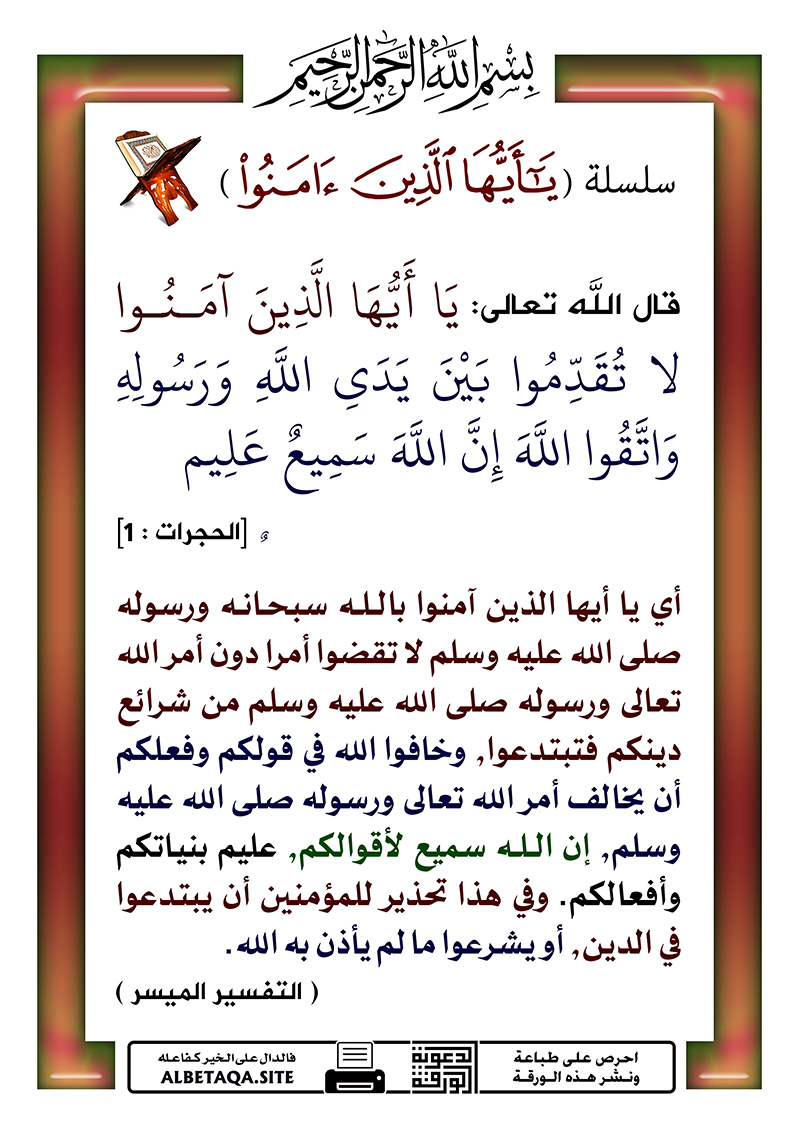 بِسْمِ اللَّهِ الرَّحْمَٰنِ الرَّحِيمِ
سلسلة (يَـٰٓأَيُّهَا ٱلَّذِينَ ءَامَنُوا۟)
قال اللَّه تعالى: يَا أَيُّهَا الَّذِينَ آمَنُوا
لا تُقَدِّمُوا بَيْنَ يَدَيِ اللَّهِ وَرَسُولِهِ
وَاتَّقُوا اللَّهَ إِنَّ اللَّهَ سَمِيعٌ عَلِيم
ٌ [الحجرات : 1]
أي يا أيها الذين آمنوا بالله سبحانه ورسوله
صلى الله عليه وسلم لا تقضوا أمرا دون أمر الله
تعالى ورسوله صلى الله عليه وسلم من شرائع
دينكم فتبتدعوا, وخافوا الله في قولكم وفعلكم
أن يخالف أمر الله تعالى ورسوله صلى الله عليه
وسلم, إن الله سميع لأقوالكم, عليم بنياتكم
وأفعالكم. وفي هذا تحذير للمؤمنين أن يبتدعوا
في الدين, أو يشرعوا ما لم يأذن به الله.
( التفسير الميسر )
احرص على طباعة
ونشر هذه الورقة
الورقة الدعوية
فالدال على الخير كفاعله
ALBETAQA.SITE